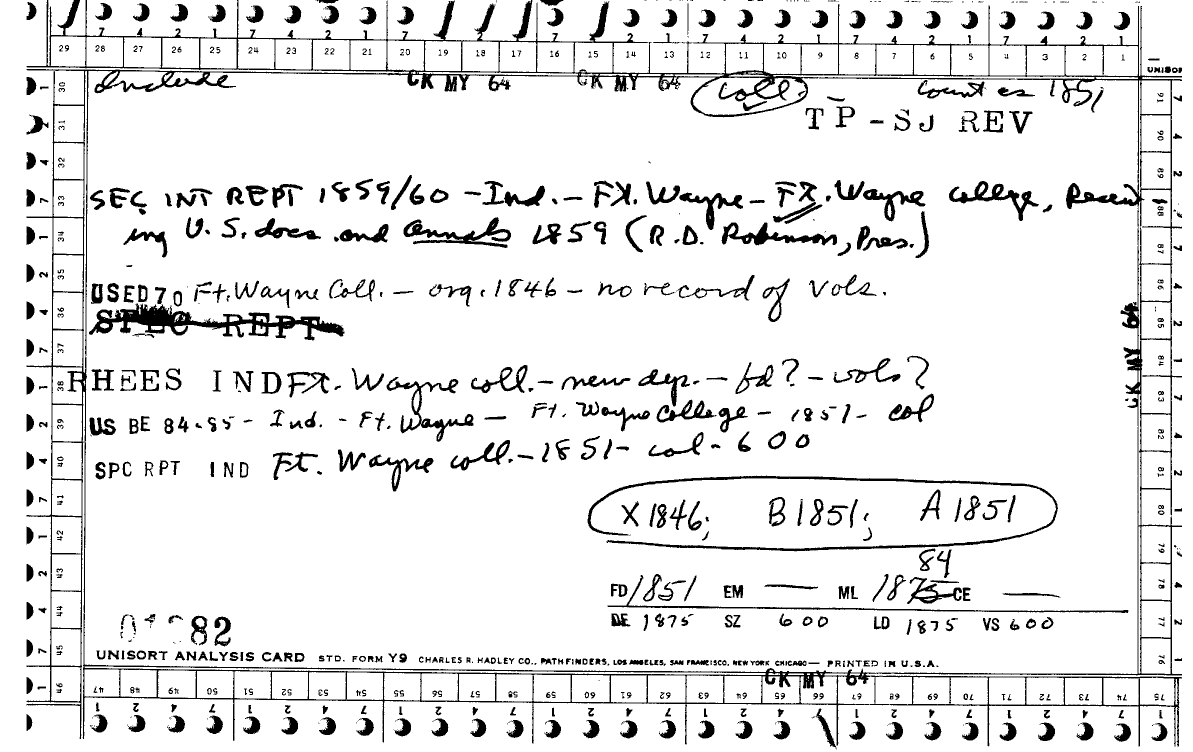 29 28 27 26 25 24 23 22 21 20 19 18 17 16 15 14 13 12 11 10 9 8 7 6 5 4 3 2 1
Include CK MY 64 CK MY 64 coll. Count as 1851
TP-SJ REV
SEC INT REPT 1859/60 - Ind. - Ft. Wayne - Ft. Wayne College, Receiv
ing U.S. docs. and Annals 1859 (R.D. Robinson, Pres.)
USED 70 Ft. Wayne Coll. - org. 1846 - no record of vols.
SPEC REPT
RHEES IND Ft. Wayne coll. - new dep. - fd? - vols?
US BE 84-85 - Ind. - Ft. Wayne - Ft. Wayne College - 1851 - col
SPC RPT IND Ft. Wayne coll. - 1851 - col - 600
CK MY 64
X 1846; B 1851; A 1851
84
FD 1851 EM — ML 1875 CE —
DE 1875 SZ 600 LD 1875 VS 600
82
UNISORT ANALYSIS CARD STD. FORM Y9 CHARLES R. HADLEY CO., PATHFINDERS, LOS ANGELES, SAN FRANCISCO, NEW YORK CHICAGO — PRINTED IN U.S.A.
CK MY 64
47 48 49 50 51 52 53 54 55 56 57 58 59 60 61 62 63 64 65 66 67 68 69 70 71 72 73 74 75